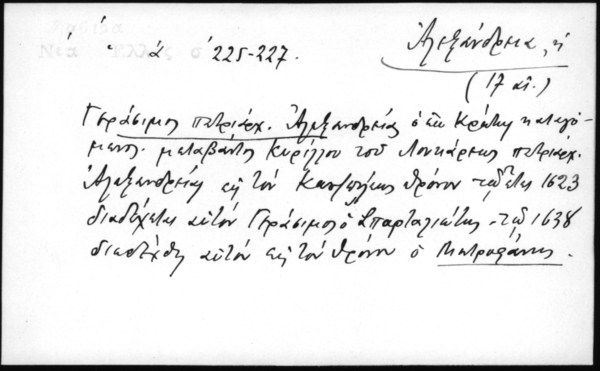 Νέα Ἑλλὰς
ά 225-227.
Ἀλεξάνδρεια, ἡ
(17 αἰ.)
Γεράσιμος πατριάρχ. Ἀλεξανδρείας ὁ ἐκ Κρήτης καταγό-
μενος. μεταβάντος Κυρίλλου τοῦ Λουκάρεως πατριάρχ.
Ἀλεξανδρείας εἰς τὸν Κων/πόλεως θρόνον τῷ ἔτει 1623
διαδέχεται αὐτὸν Γεράσιμος ὁ Σπαρταλιώτης. τῷ 1638
διεδέχθη αὐτὸν εἰς τὸν θρόνον ὁ Μητροφάνης.